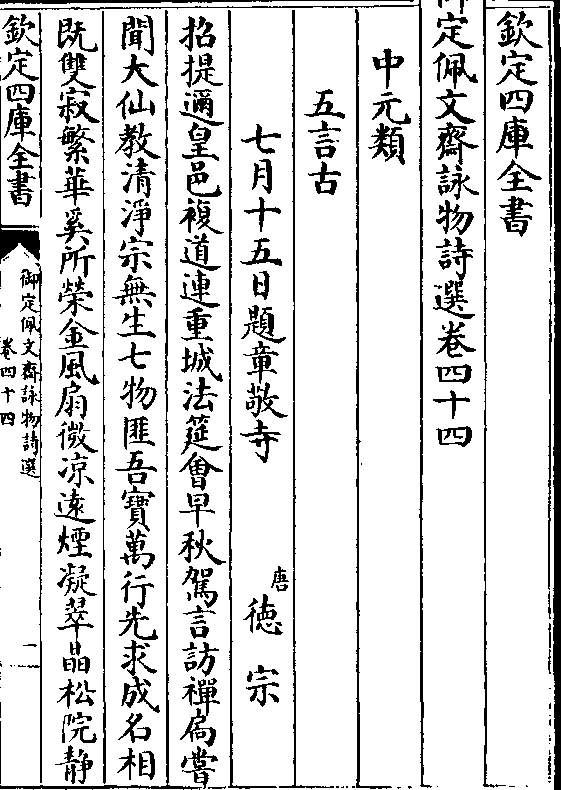 欽定四庫全書
御定佩文齋詠物詩選卷四十四
中元類
五言古
七月十五日題章敬寺 唐 徳宗
招提邇皇邑複道連重城法筵會早秋駕言訪禪扃嘗
聞大仙教清淨宗無生七物匪吾寶萬行先求成名相
既雙寂繁華奚所榮金風扇微涼遠煙凝翠晶松院静
欽定四庫全書
御定佩文齋詠物詩選
卷四十四